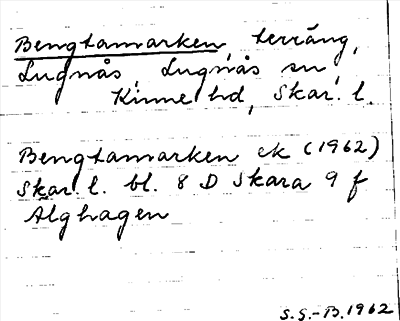 Bengtamarken, terräng,
Lugnås, Lugnås sn,
Kinne hd, Skar. l.
Bengtamarken ek (1962)
Skar. l. bl. 8 D Skara 9 f
Älghagen
S.S.-B. 1962